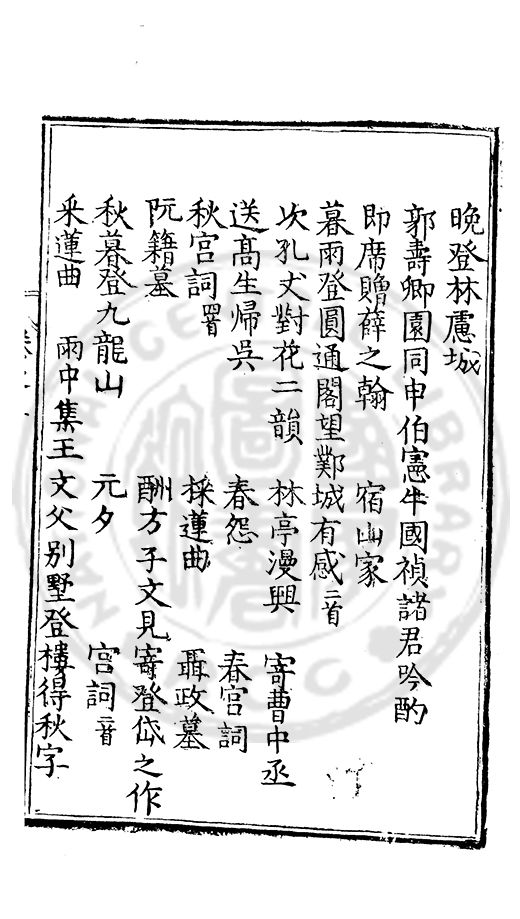 晚登林慮城
郭壽卿園同申伯憲牛國禎諸君吟酌
即席贈薛之翰 宿山家
暮雨登圓通閣望鄴城有感二首
次孔丈對花二韻 林亭漫興 寄曹中丞
送高生歸吳 春怨 春宮詞
秋宮詞 採蓮曲 聶政墓
阮籍墓 酬方子文見寄登岱之作
秋暮登九龍山 元夕 宮詞
采蓮曲 雨中集王文父別墅登樓得秋字